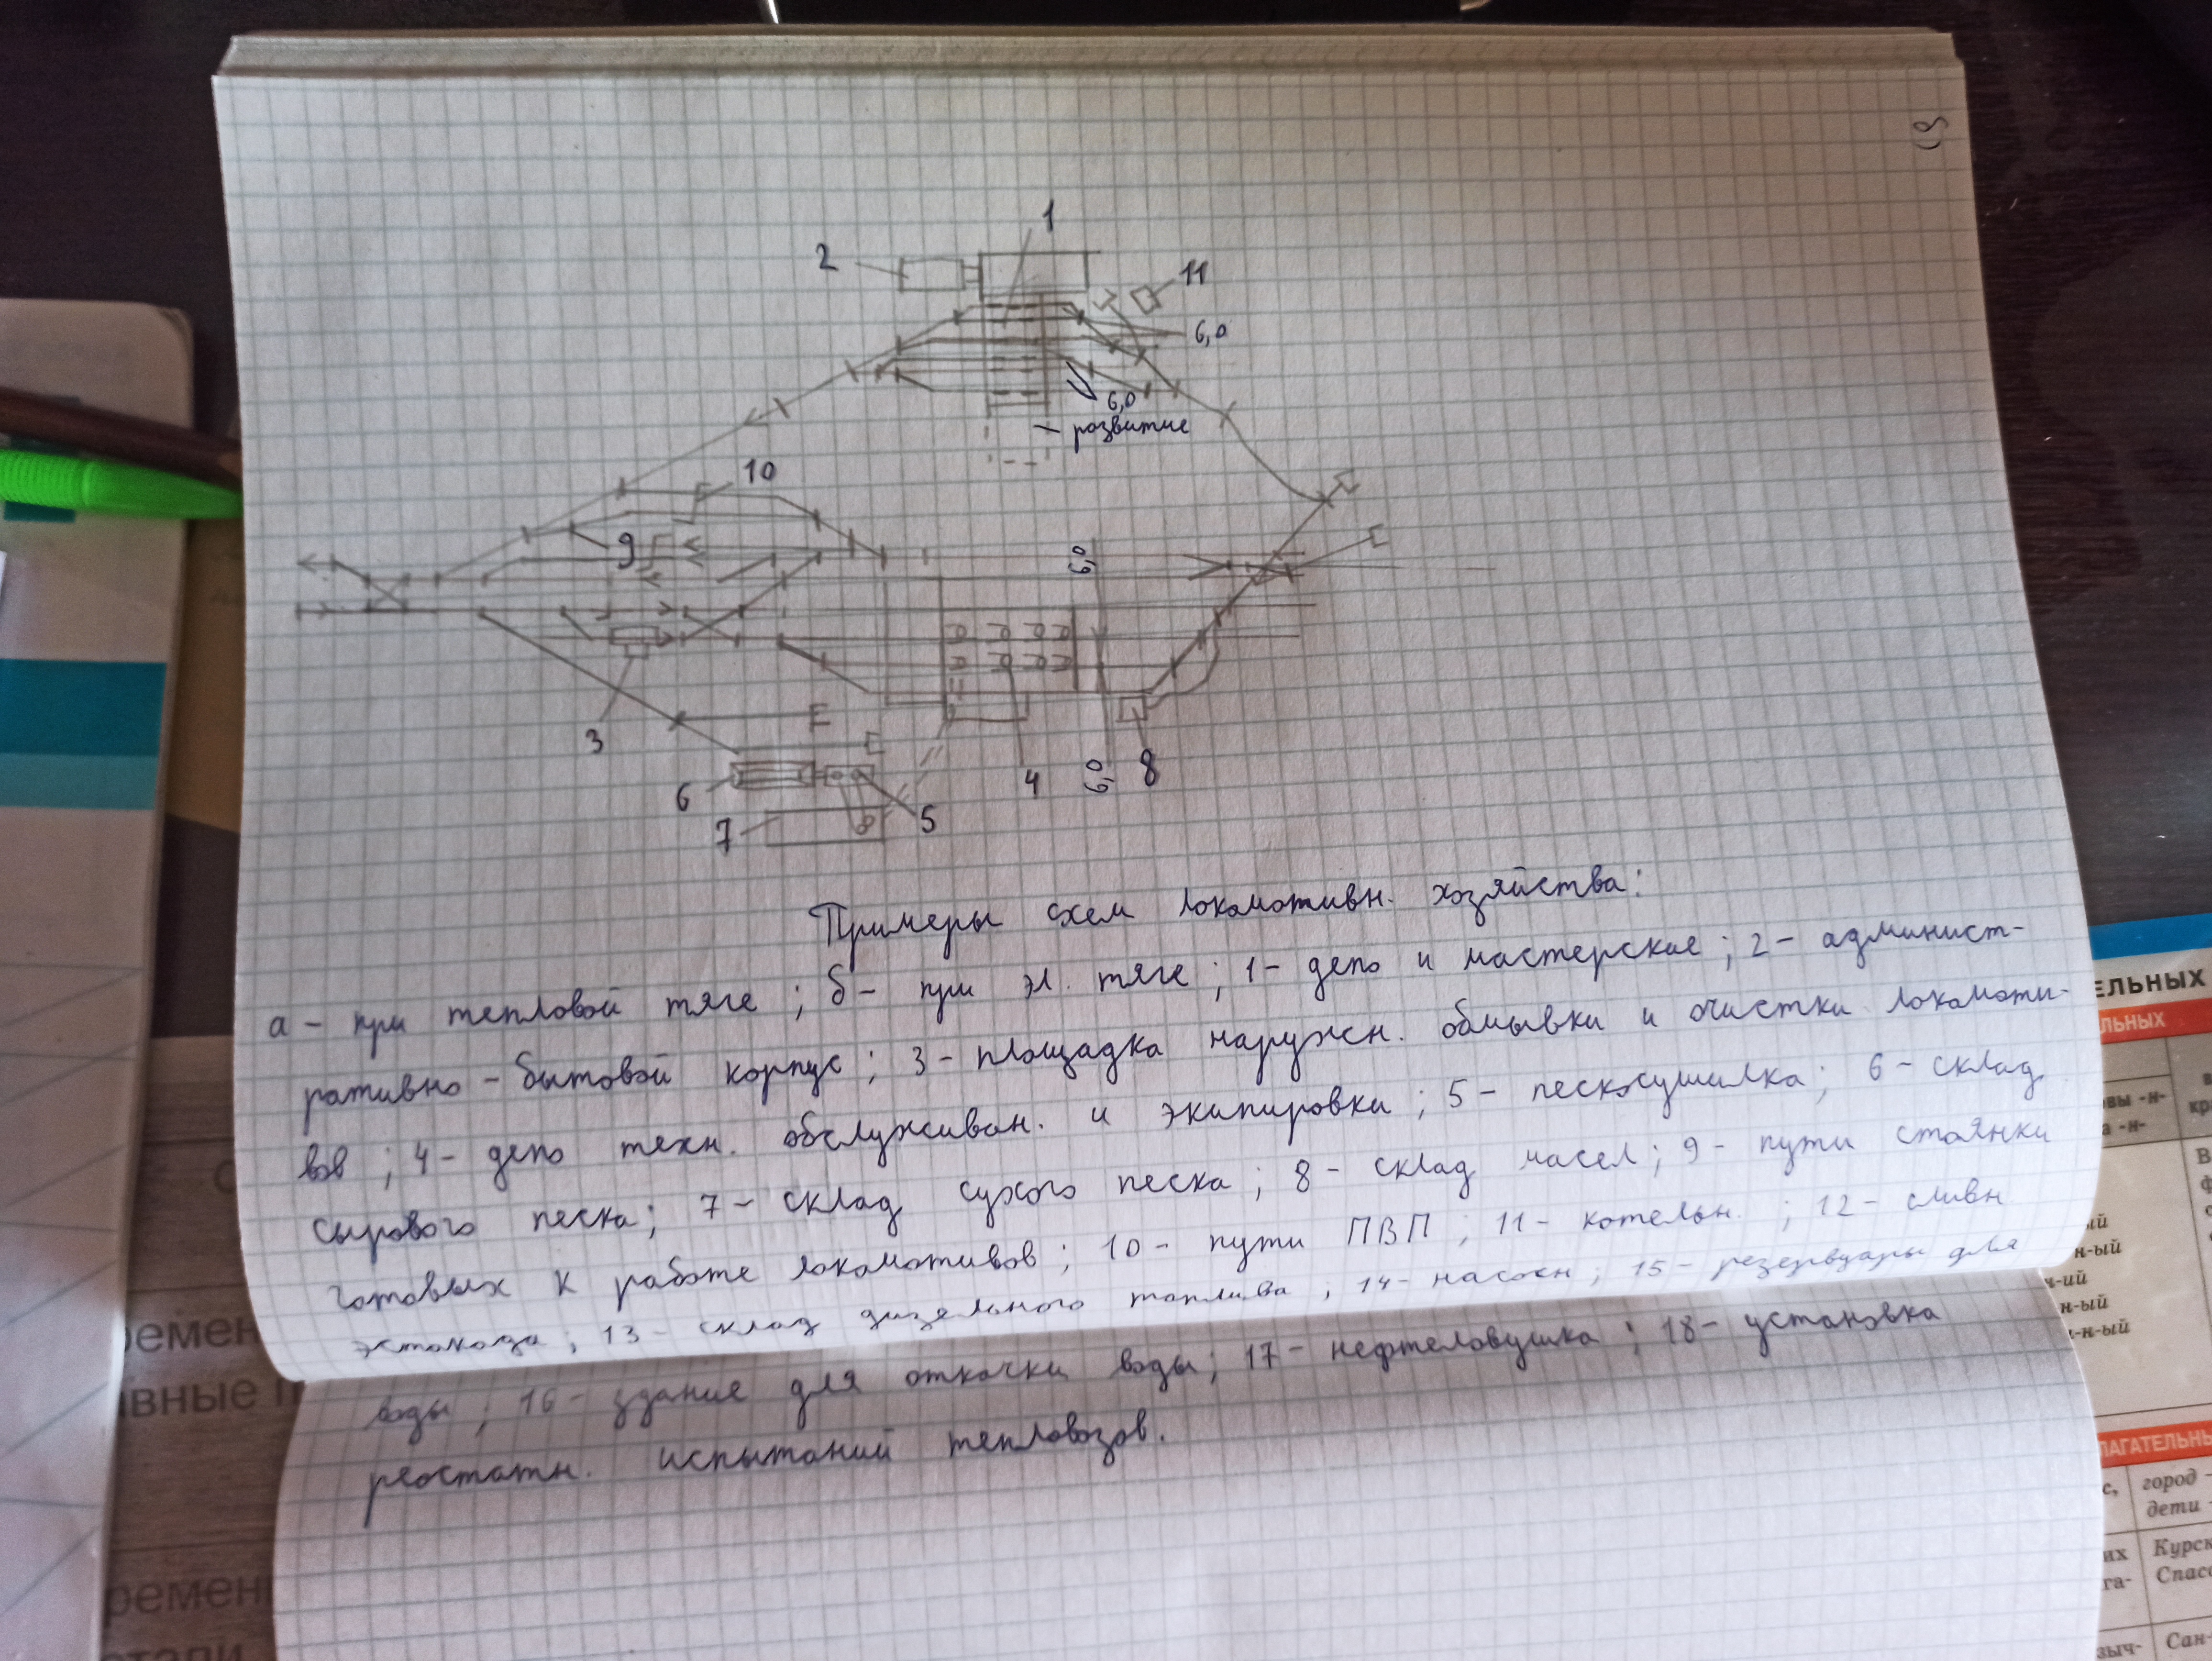 1
2
11
6,0
6,0
развитие
10
9
6,0
3
6
7
5
4
6,0
8
Примеры схем локомотивн. хозяйства:
а – при тепловой тяге ; б – при эл. тяге ; 1 – депо и мастерские ; 2 – админист-
ративно – бытовой корпус ; 3 – площадка наружн. обмывки и очистки локомоти-
вов ; 4 – депо техн. обслуживан. и экипировки ; 5 – пескосушилка ; 6 – склад
сырового песка ; 7 – склад сухого песка ; 8 – склад масел ; 9 – пути стоянки
готовых к работе локомотивов ; 10 – пути ПВП ; 11 – котельн. ; 12 – сливн
эстокада ; 13 – склад дизельного топлива , 14 – насосн ; 15 – резервуары для
воды ; 16 – здание для откачки воды ; 17 – нефтеловушка ; 18 – установка
реостатн. испытаний тепловозов.
ЕЛЬНЫХ
ЛЬНЫХ
н-ый
город –
дети –
их
Курск
Спасс
Сан-